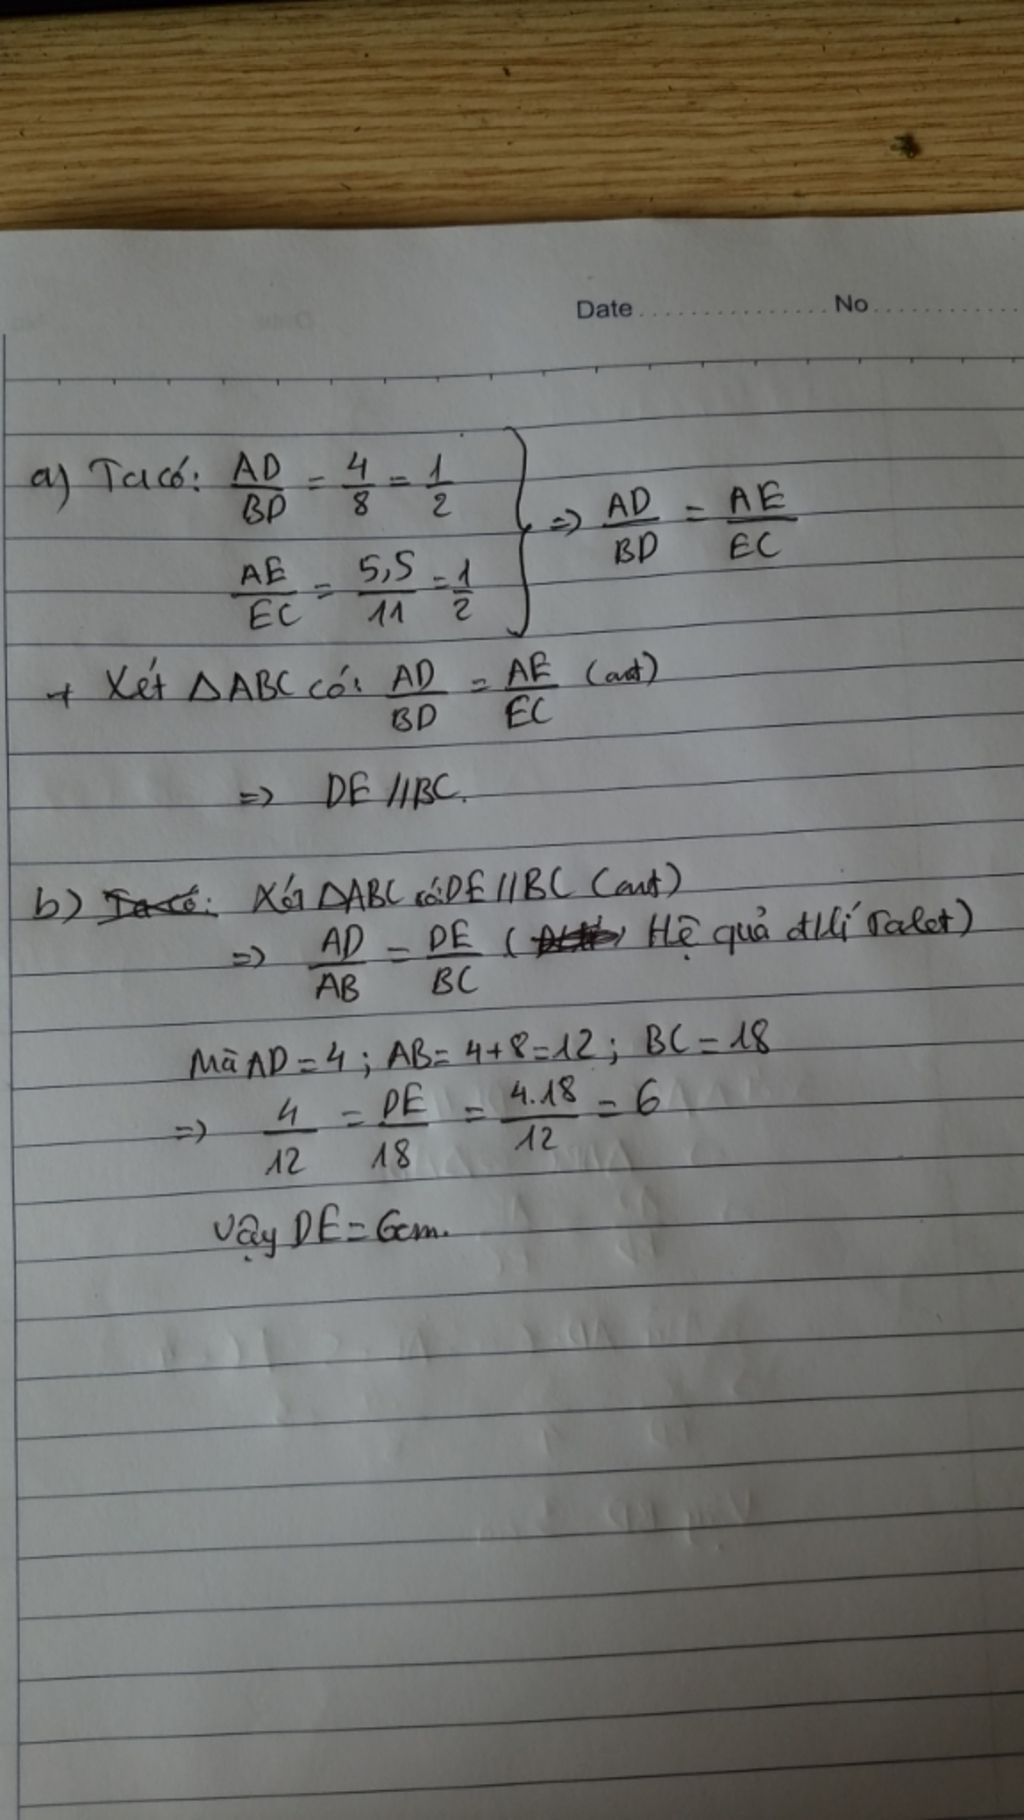 Date ................ No ............
a) Ta có: AD/BD = 4/8 = 1/2
AE/EC = 5,5/11 = 1/2 } => AD/BD = AE/EC
+ Xét △ABC có: AD/BD = AE/EC (cmt)
=> DE // BC.
b) Ta có: Xét △ABC có DE // BC (cmt)
=> AD/AB = DE/BC ( Hệ quả đlí Talet)
Mà AD = 4 ; AB = 4+8=12 ; BC = 18
=> 4/12 = DE/18 = 4.18/12 = 6
Vậy DE = 6cm.